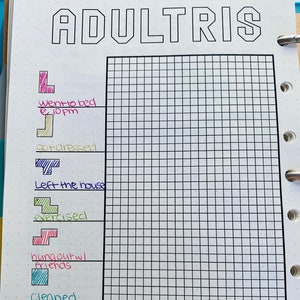 ADULTRIS
Went to bed
@ 10pm
Got dressed
Left the house
exercised
hung out w/
friends
cleaned